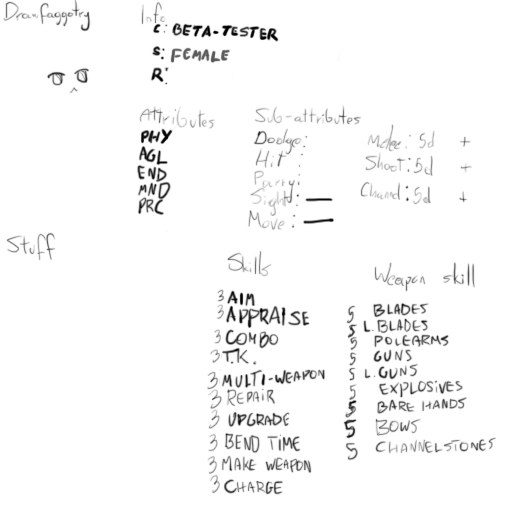 Drawfaggotry
Info
C: BETA-TESTER
S: FEMALE
R:
Attributes
PHY
AGL
END
MND
PRC
Sub-attributes
Dodge:
Hit :
Parry:
Sight:
Move :
Melee: 5d +
Shoot: 5d +
Channel: 5d +
Stuff
Skills
3 AIM
3 APPRAISE
3 COMBO
3 T.K.
3 MULTI-WEAPON
3 REPAIR
3 UPGRADE
3 BEND TIME
3 MAKE WEAPON
3 CHARGE
Weapon skill
5 BLADES
5 L.BLADES
5 POLEARMS
5 GUNS
5 L.GUNS
5 EXPLOSIVES
5 BARE HANDS
5 BOWS
5 CHANNELSTONES